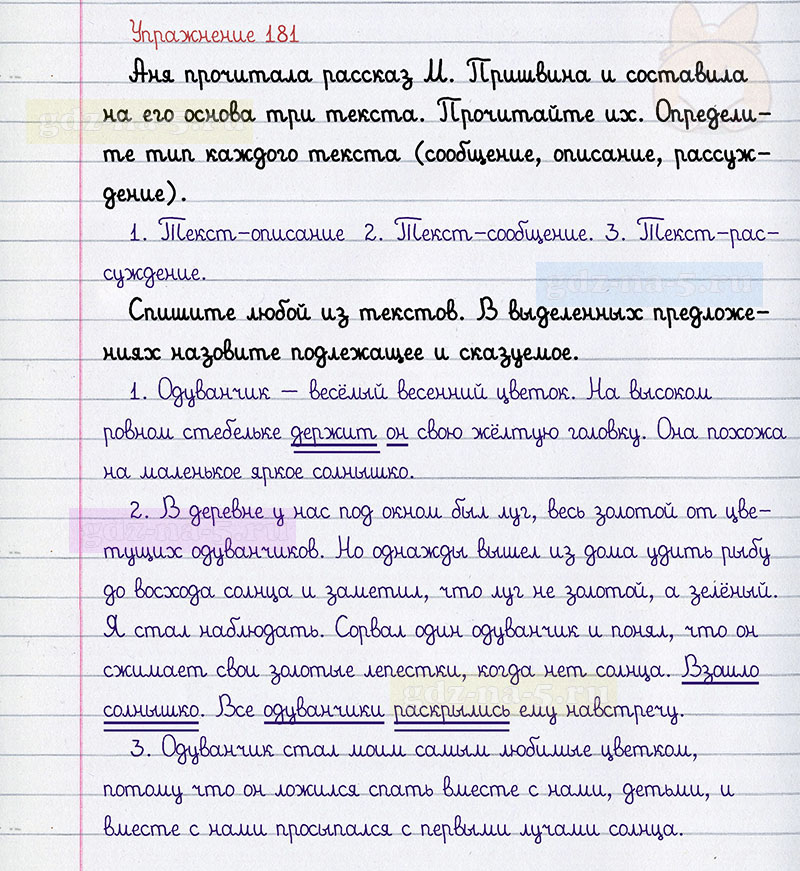 Упражнение 181
Аня прочитала рассказ М. Пришвина и составила
на его основа три текста. Прочитайте их. Определи-
те тип каждого текста (сообщение, описание, рассуж-
дение).
1. Текст-описание 2. Текст-сообщение. 3. Текст-рас-
суждение.
Спишите любой из текстов. В выделенных предложе-
ниях назовите подлежащее и сказуемое.
1. Одуванчик – весёлый весенний цветок. На высоком
ровном стебельке держит он свою жёлтую головку. Она похожа
на маленькое яркое солнышко.
2. В деревне у нас под окном был луг, весь золотой от цве-
тущих одуванчиков. Но однажды вышел из дома удить рыбу
до восхода солнца и заметил, что луг не золотой, а зелёный.
Я стал наблюдать. Сорвал один одуванчик и понял, что он
сжимает свои золотые лепестки, когда нет солнца. Взошло
солнышко. Все одуванчики раскрылись ему навстречу.
3. Одуванчик стал моим самым любимые цветком,
потому что он ложился спать вместе с нами, детьми, и
вместе с нами просыпался с первыми лучами солнца.
gdz-na-5.ru
gdz-na-5.ru
gdz-na-5.ru
gdz-na-5.ru